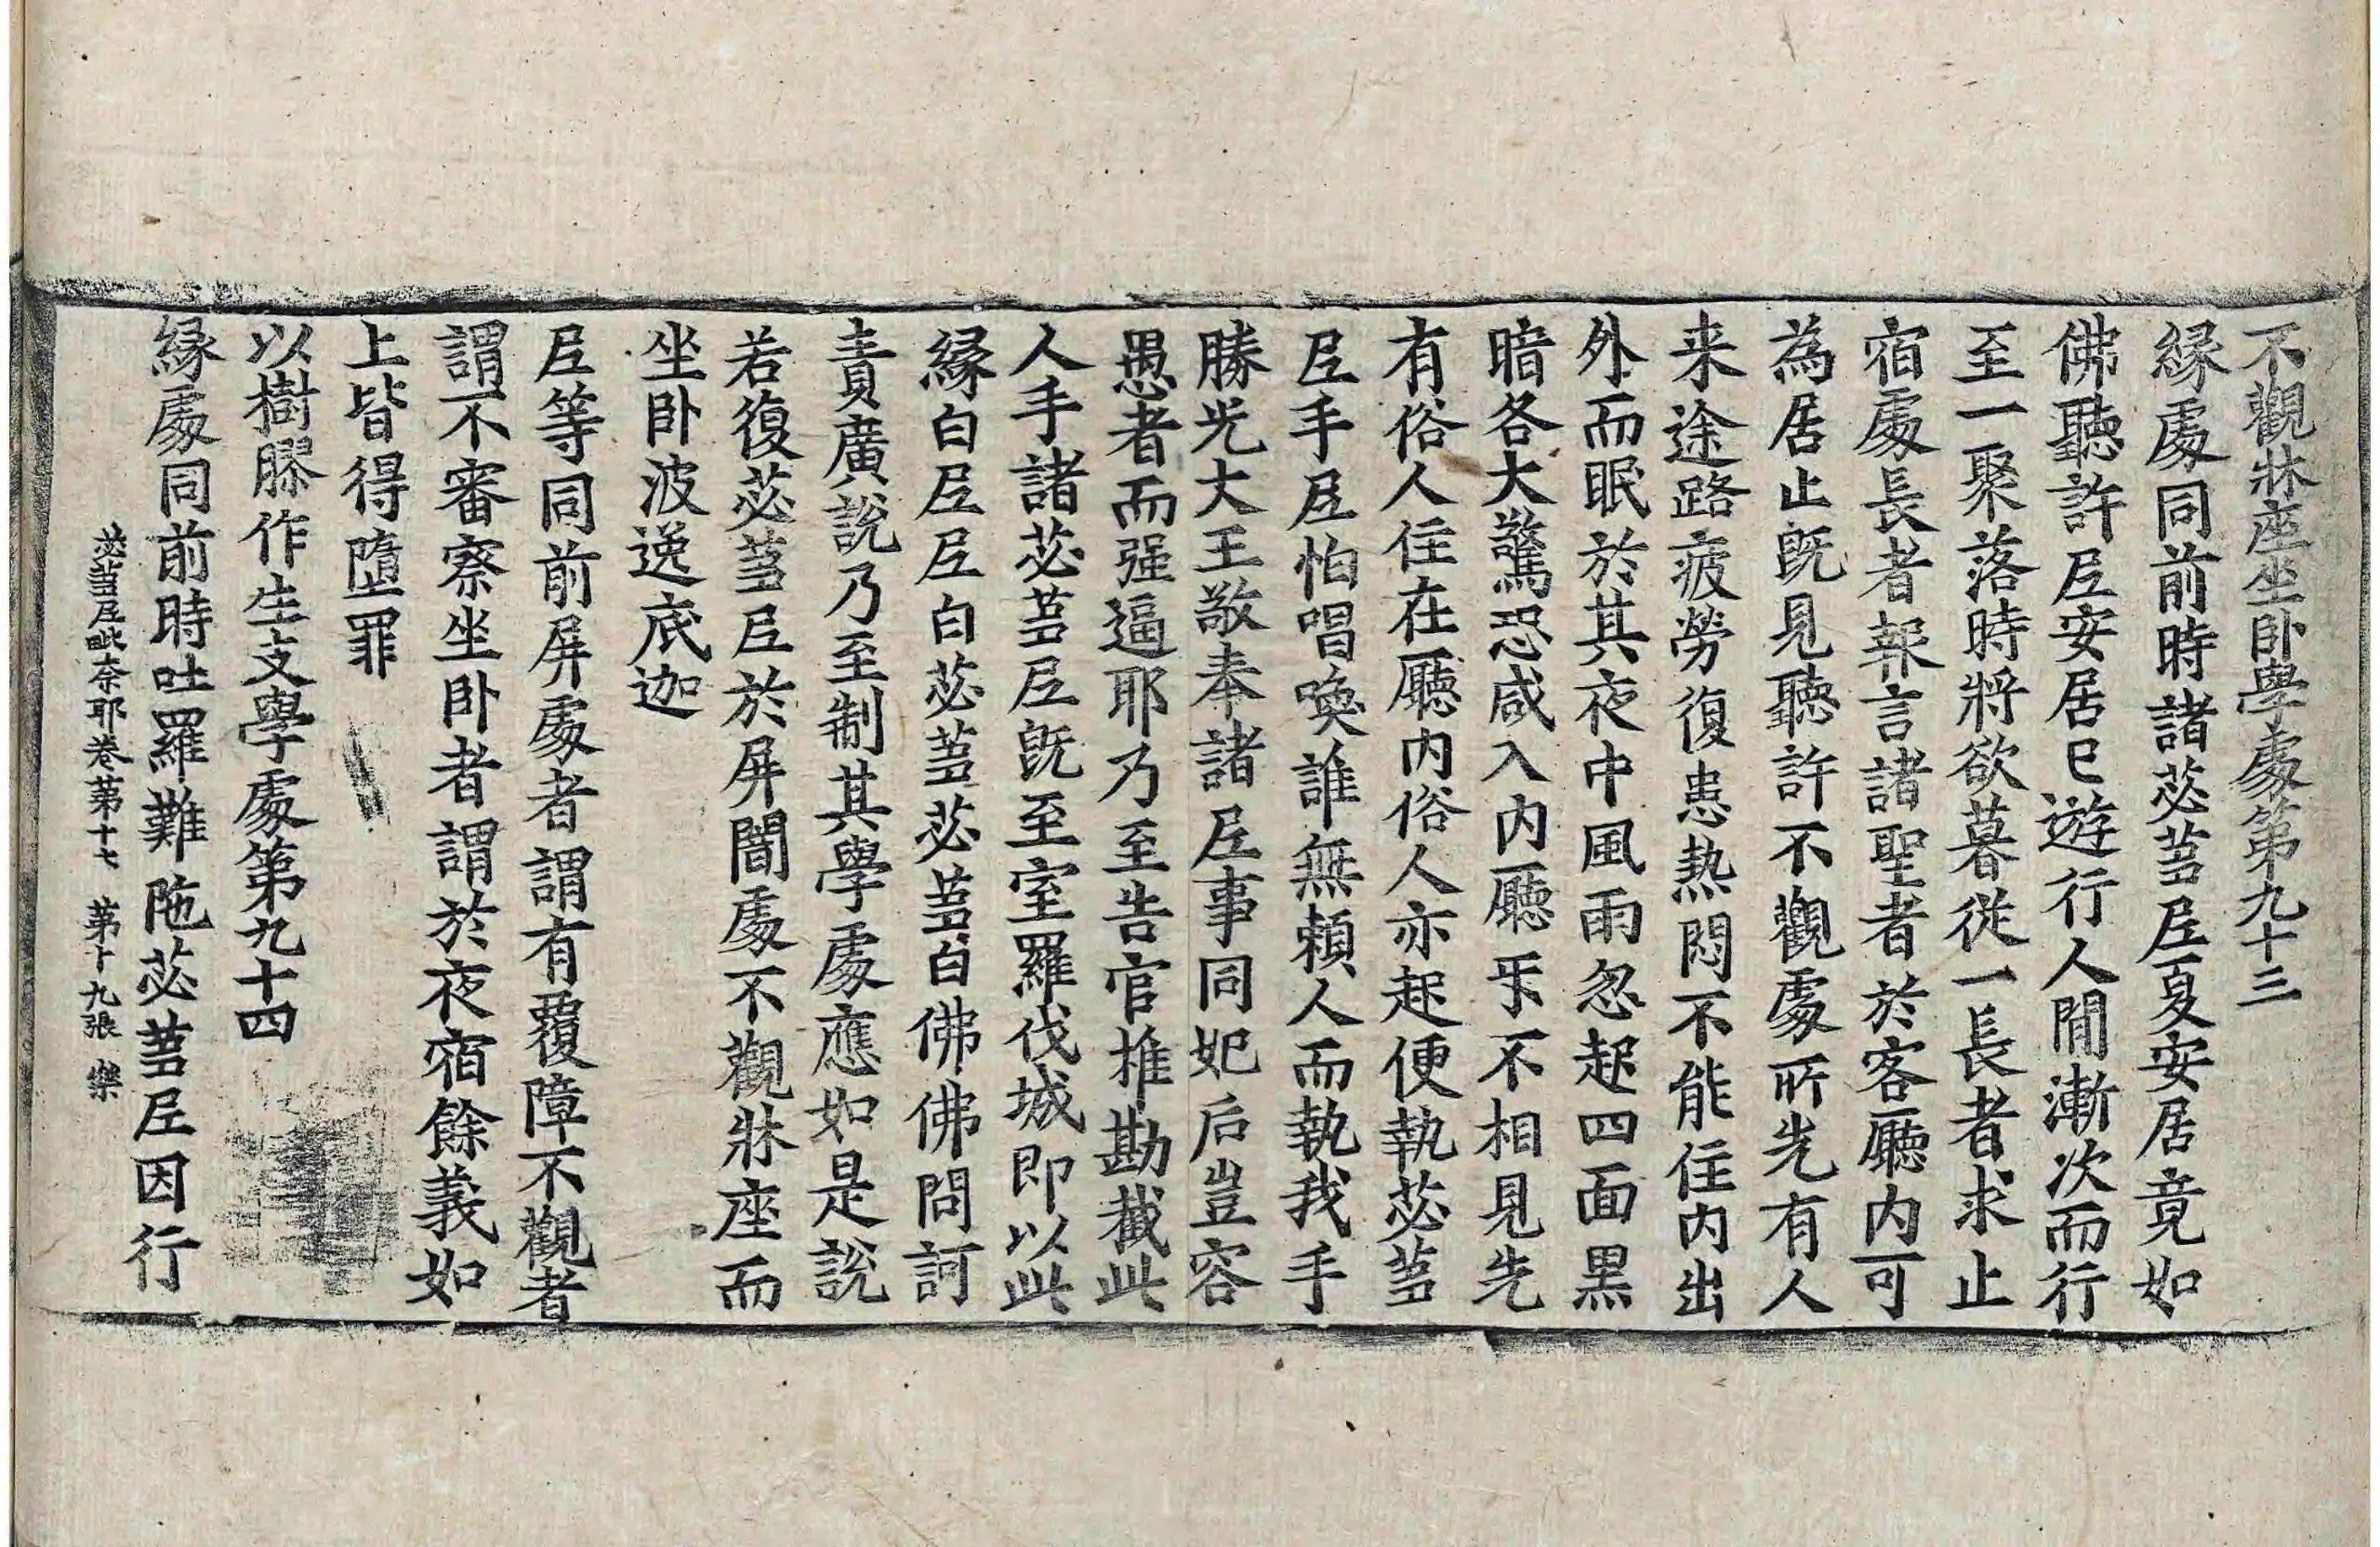 不觀牀座坐卧學處第九十三
緣處同前時諸苾芻尼夏安居竟如
佛聽許尼安居已遊行人閒漸次而行
至一聚落時將欲暮從一長者求止
宿處長者報言諸聖者於客廳内可
為居止旣見聽許不觀處所先有人
来途路疲勞復患熱悶不能住内出
外而眠於其夜中風雨忽起四面黒
暗各大驚恐咸入内廳㸦不相見先
有俗人住在廳内俗人亦起便執苾芻
尼手尼怕唱喚誰無賴人而執我手
勝光大王敬奉諸尼事同妃后豈容
愚者而强逼耶乃至告官推勘截此
人手諸苾芻尼旣至室羅伐城即以此
緣白尼尼白苾芻苾芻白佛佛問訶
責廣說乃至制其學處應如是說
若復苾芻尼於屏闇處不觀牀座而
坐卧波逸底迦
尼等同前屏處者謂有覆障不觀者
謂不審察坐卧者謂於夜宿餘義如
上皆得墮罪
以樹膠作生支學處第九十四
緣處同前時吐羅難陁苾芻尼因行
苾芻尼毗奈耶卷第十七 第十九張 樂